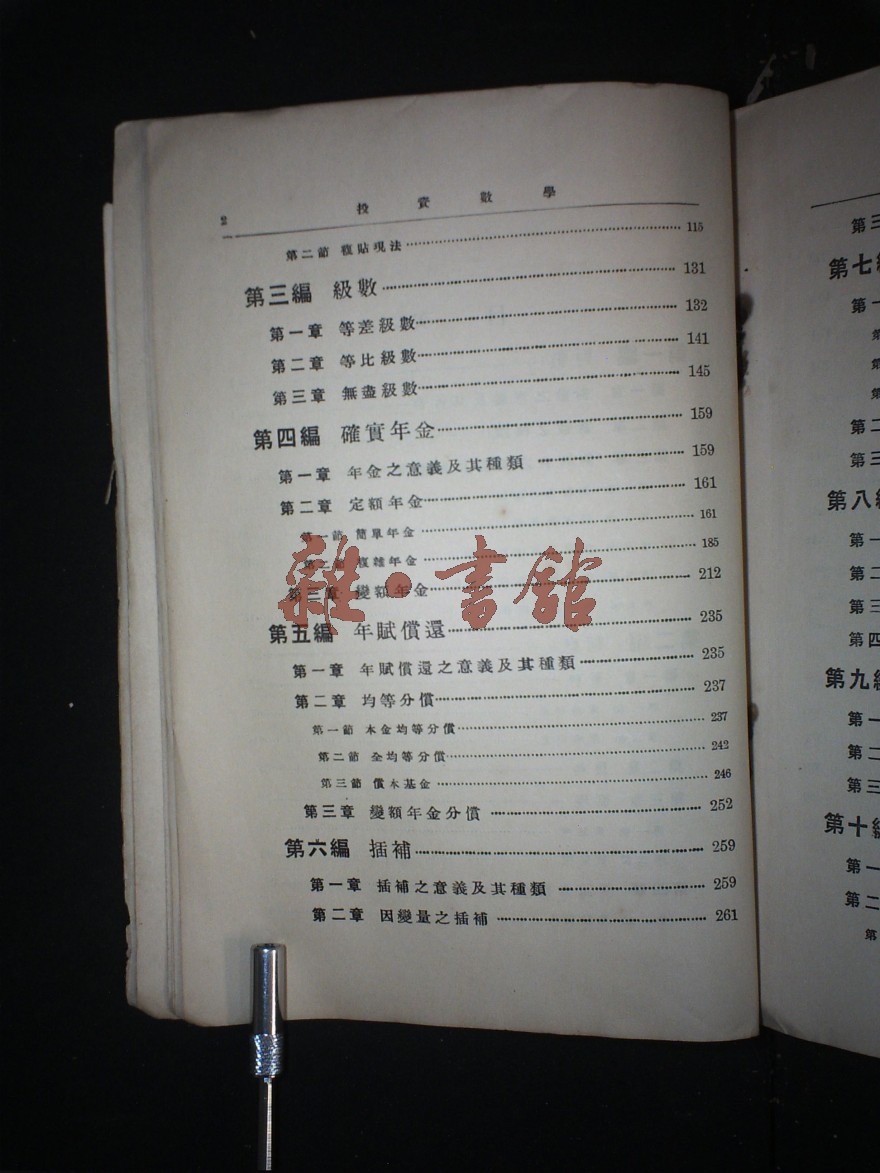 2 投資數學
第二節 複貼現法 115
第三編 級數 131
第一章 等差級數 132
第二章 等比級數 141
第三章 無盡級數 145
第四編 確實年金 159
第一章 年金之意義及其種類 159
第二章 定額年金 161
第一節 簡單年金 161
第二節 複雜年金 185
第三章 變額年金 212
第五編 年賦償還 235
第一章 年賦償還之意義及其種類 235
第二章 均等分償 237
第一節 本金均等分償 237
第二節 全均等分償 242
第三節 償本基金 246
第三章 變額年金分償 252
第六編 插補 259
第一章 插補之意義及其種類 259
第二章 因變量之插補 261
雜·書館
第三
第七編
第一
第
第
第
第二
第三
第八編
第一
第二
第三
第四
第九編
第一
第二
第三
第十編
第一
第二
第